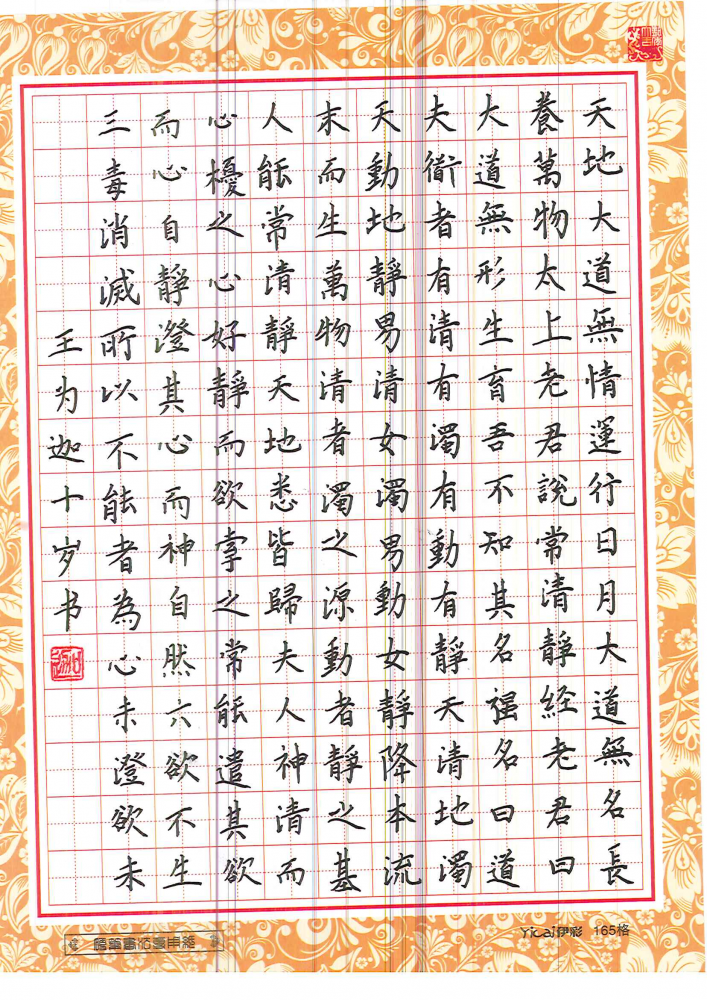 天地大道無情運行日月大道無名長
養萬物太上老君說常清靜経老君曰
大道無形生育吾不知其名强名曰道
夫衜者有清有濁有動有靜天清地濁
天動地靜男清女濁男動女靜降本流
末而生萬物清者濁之源動者靜之基
人能常清靜天地悉皆歸夫人神清而
心擾之心好靜而欲牽之常能遣其欲
而心自靜澄其心而神自然六欲不生
三毒消滅所以不能者為心未澄欲未
王为迦十岁书
YiCai伊彩 165格